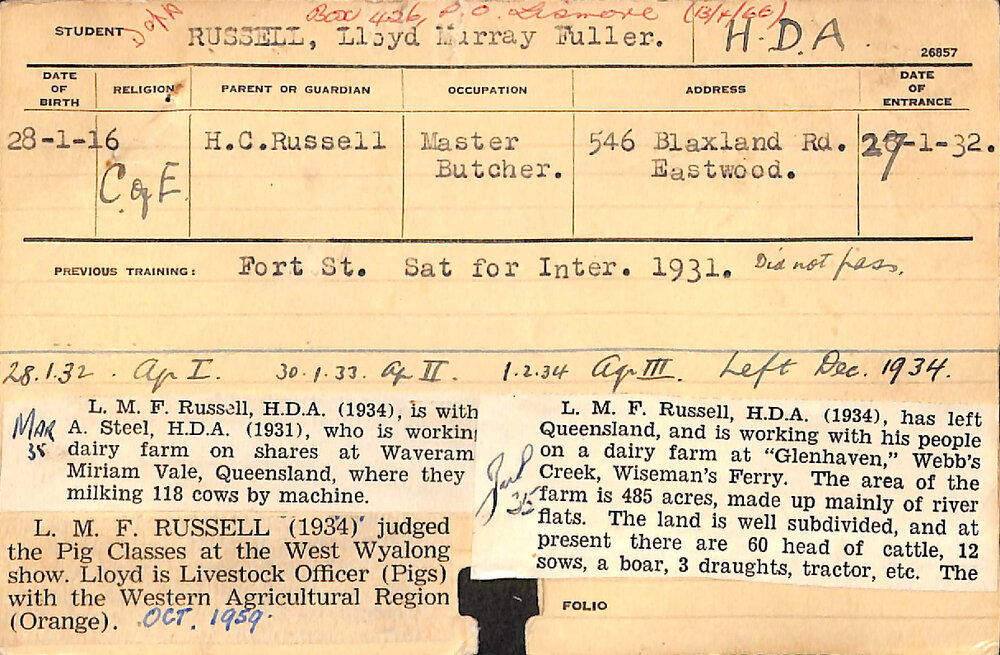 Box 426, P.O. Lismore (13/4/66)
STUDENT RUSSELL, Lloyd Murray Fuller. H.D.A.
26857
DATE OF BIRTH RELIGION PARENT OR GUARDIAN OCCUPATION ADDRESS DATE OF ENTRANCE
28-1-16 H.C.Russell Master 546 Blaxland Rd. 27-1-32.
C of E Butcher. Eastwood.
PREVIOUS TRAINING: Fort St. Sat for Inter. 1931. Did not pass.
28.1.32. Ag I. 30.1.33. Ag II. 1.2.34 Ag III. Left Dec. 1934.
MAR 35
L. M. F. Russell, H.D.A. (1934), is with
A. Steel, H.D.A. (1931), who is workin
dairy farm on shares at Waveram
Miriam Vale, Queensland, where they
milking 118 cows by machine.
L. M. F. RUSSELL (1934) judged
the Pig Classes at the West Wyalong
show. Lloyd is Livestock Officer (Pigs)
with the Western Agricultural Region
(Orange). OCT. 1959.
35
L. M. F. Russell, H.D.A. (1934), has left
Queensland, and is working with his people
on a dairy farm at "Glenhaven," Webb's
Creek, Wiseman's Ferry. The area of the
farm is 485 acres, made up mainly of river
flats. The land is well subdivided, and at
present there are 60 head of cattle, 12
sows, a boar, 3 draughts, tractor, etc. The
FOLIO